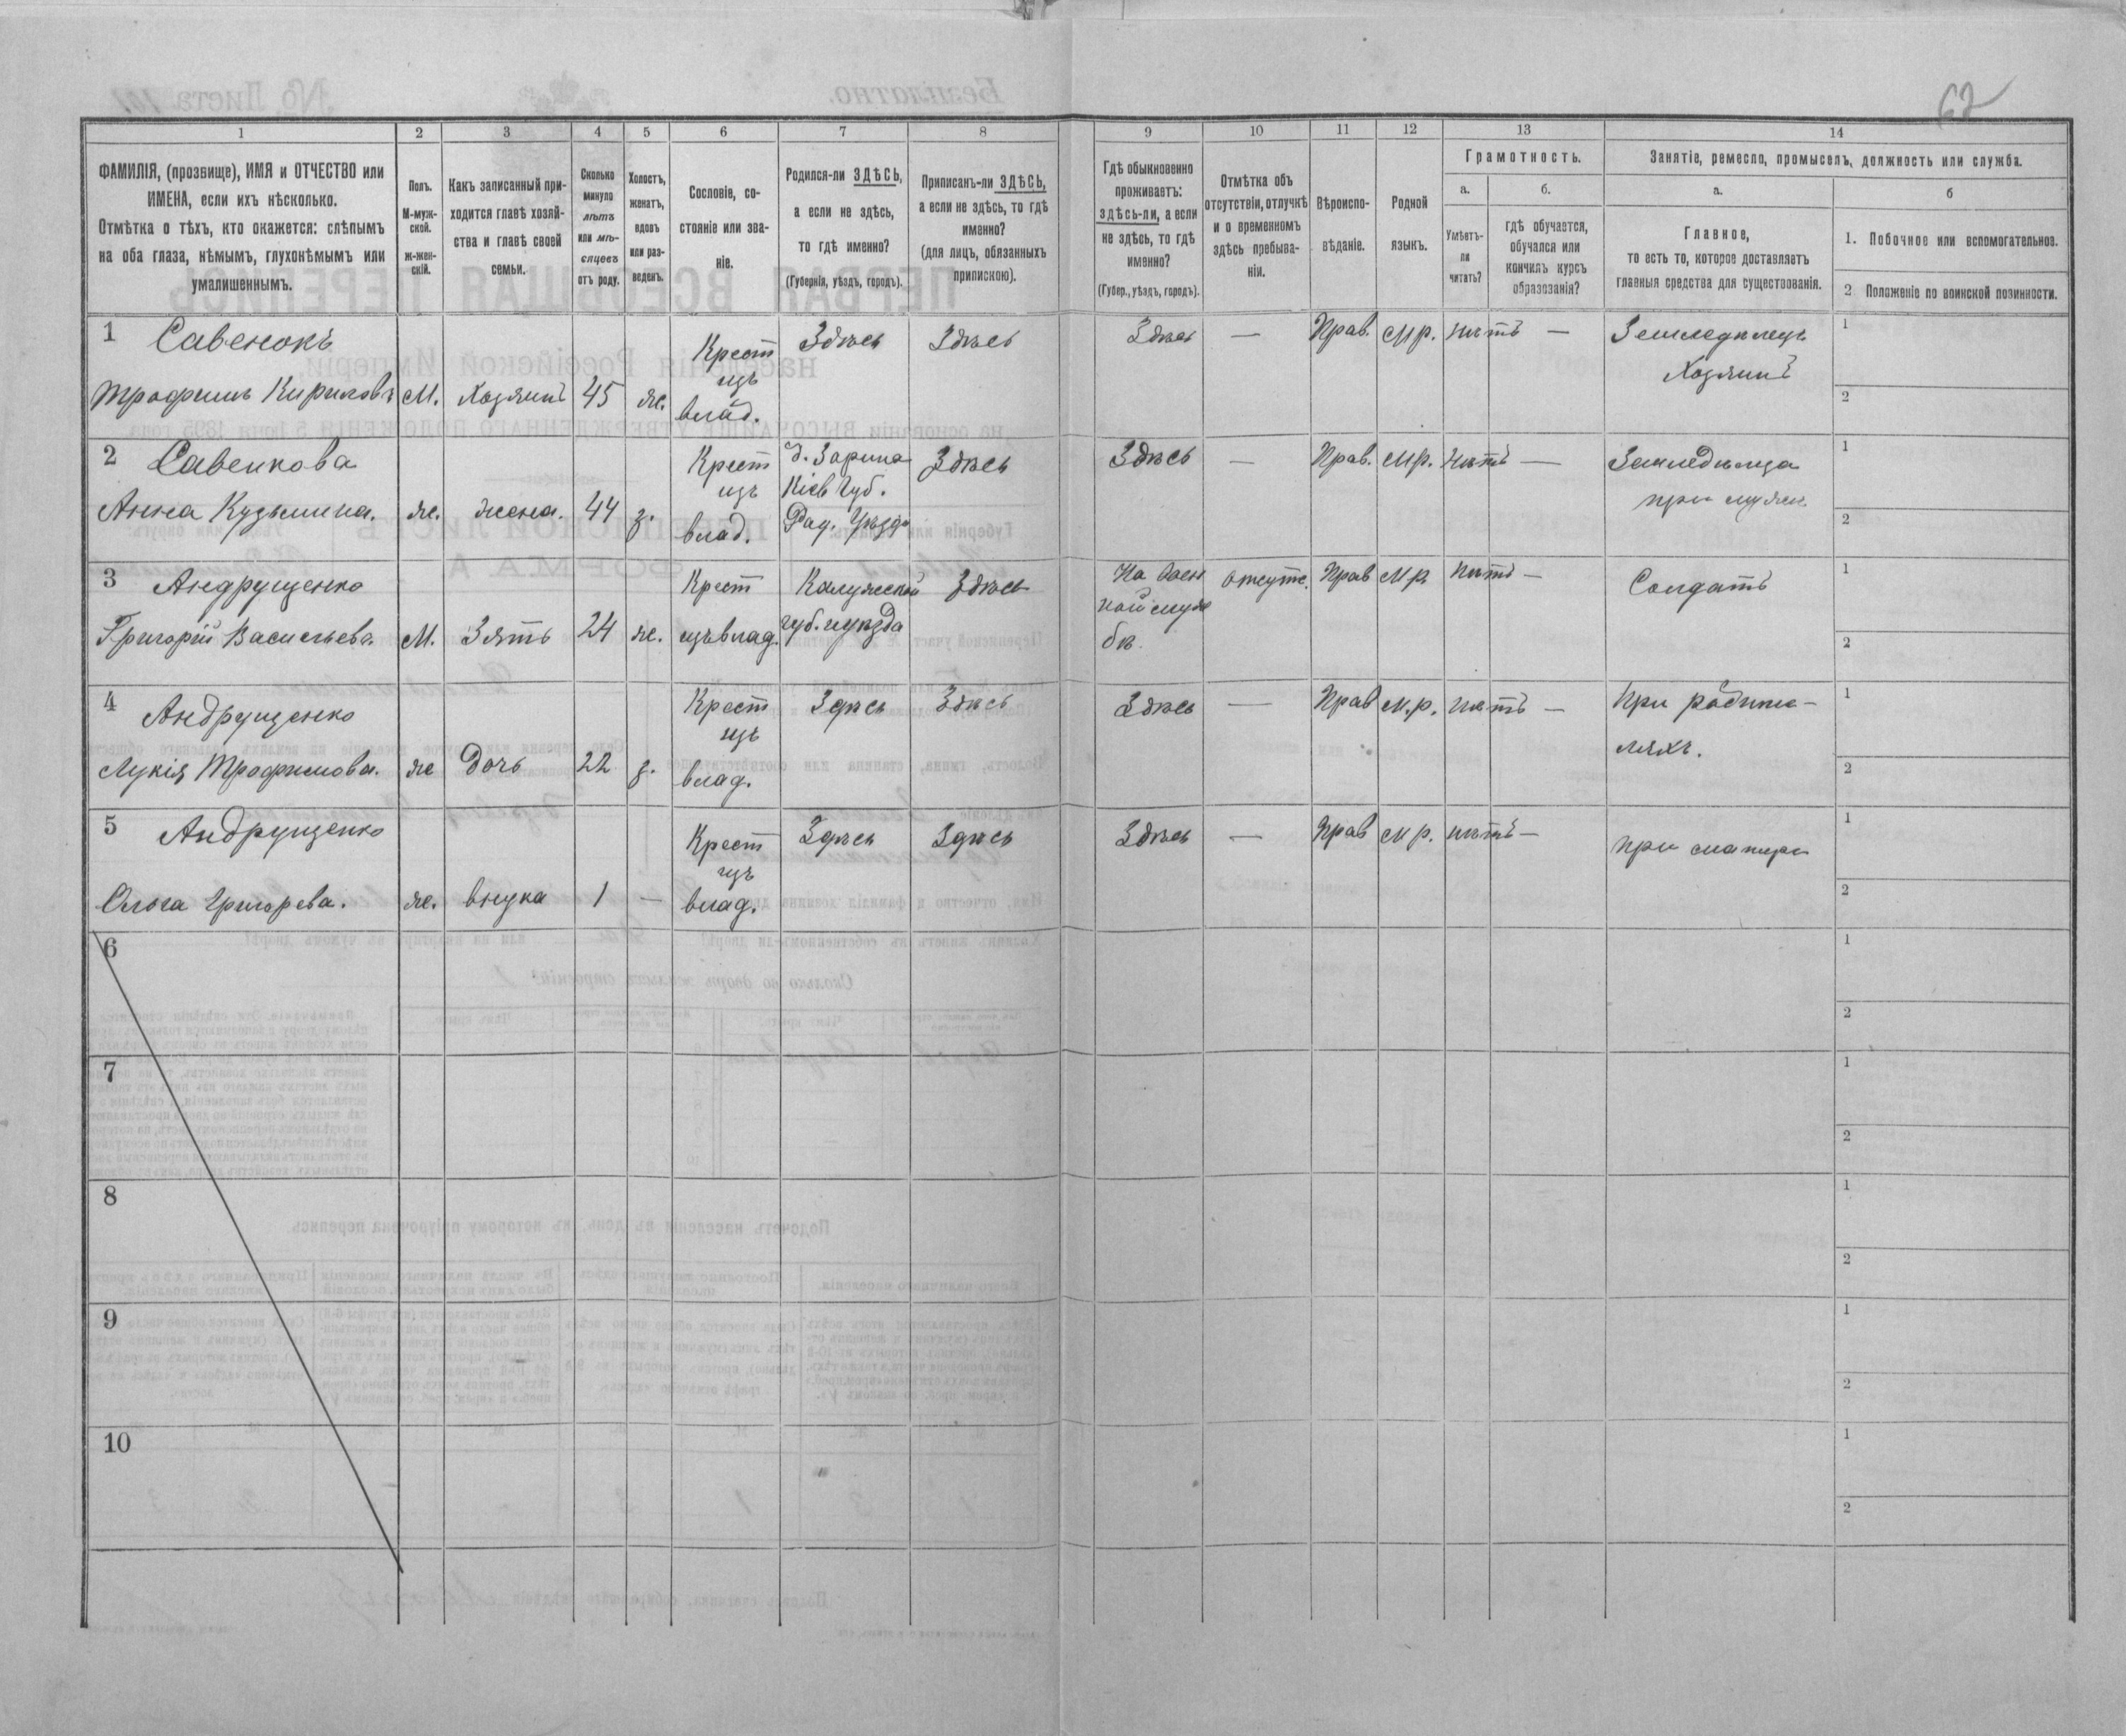 62
1
2
3
4
5
6
7
8
9
10
11
12
13
14
ФАМИЛІЯ, (прозвище), ИМЯ и ОТЧЕСТВО или
ИМЕНА, если ихъ нѣсколько.
Отмѣтка о тѣхъ, кто окажется: слѣпымъ
на оба глаза, нѣмымъ, глухонѣмымъ или
умалишеннымъ.
Полъ.
М-муж-
ской.
ж-жен-
скій.
Какъ записанный при-
ходится главѣ хозяй-
ства и главѣ своей
семьи.
Сколько
минуло
лѣтъ
или мѣ-
сяцевъ
отъ роду.
Холостъ,
женатъ,
вдовъ
или раз-
веденъ.
Сословіе, со-
стояніе или зва-
ніе.
Родился-ли ЗДѢСЬ,
а если не здѣсь,
то гдѣ именно?
(Губернія, уѣздъ, городъ).
Приписанъ-ли ЗДѢСЬ,
а если не здѣсь, то гдѣ
именно?
(для лицъ, обязанныхъ
припискою).
Гдѣ обыкновенно
проживаетъ:
здѣсь-ли, а если
не здѣсь, то гдѣ
именно?
(Губер., уѣздъ, городъ).
Отмѣтка объ
отсутствіи, отлучкѣ
и о временномъ
здѣсь пребыва-
ніи.
Вѣроиспо-
вѣданіе.
Родной
языкъ.
Грамотность.
а.
Умѣетъ-
ли
читать?
б.
гдѣ обучается,
обучался или
кончилъ курсъ
образованія?
Занятіе, ремесло, промыселъ, должность или служба.
а.
Главное,
то есть то, которое доставляетъ
главныя средства для существованія.
б
1. Побочное или вспомогательное.
2 Положеніе по воинской повинности.
1 Савенокъ
Трофимъ Кириловъ
М.
Хозяинъ
45
ж.
Крест
изъ
влад.
Здѣсь
Здѣсь
Здѣсь
—
Прав.
М р.
нѣтъ —
Земледѣлецъ
Хозяинъ
1
2
2 Савенкова
Анна Кузьмина.
ж.
жена.
44
з.
Крест
изъ
влад.
д. Зарина
Кіев Губ.
Рад. Уѣзда
Здѣсь
Здѣсь
—
Прав.
М р.
нѣтъ —
при мужѣ
1
2
3 Андрущенко
Григорій Васильевъ.
М.
Зять
24
ж.
Крест
изъ влад.
Калужской
губ. и уѣзда
Здѣсь
На воен
ной служ
бѣ.
отсутс.
Прав
М р
нѣтъ —
Солдатъ
1
2
4 Андрущенко
Лукія Трофимова.
ж
Дочь
22
з.
Крест
изъ
влад.
Здѣсь
Здѣсь
Здѣсь
—
Прав
М. р.
нѣтъ —
При родите-
ляхъ.
1
2
5 Андрущенко
Ольга Григорева.
ж.
внука
1
—
Крест
изъ
влад.
Здѣсь
Здѣсь
Здѣсь
—
Прав
М р.
нѣтъ —
при матери
1
2
6
1
2
7
1
2
8
1
2
9
1
2
10
1
2